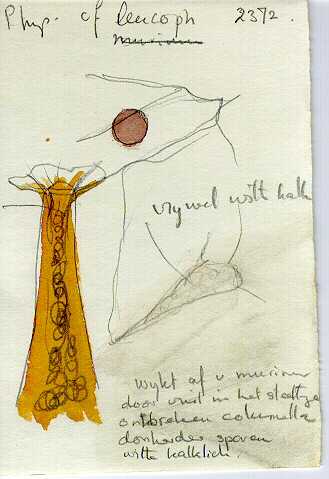 Phys. cf leucoph 2372.
murinum
vrywel witte kalk
wykt af v murinum
door vuil in het steeltje
ontbreken columella
donkerder sporen
witte kalklich.